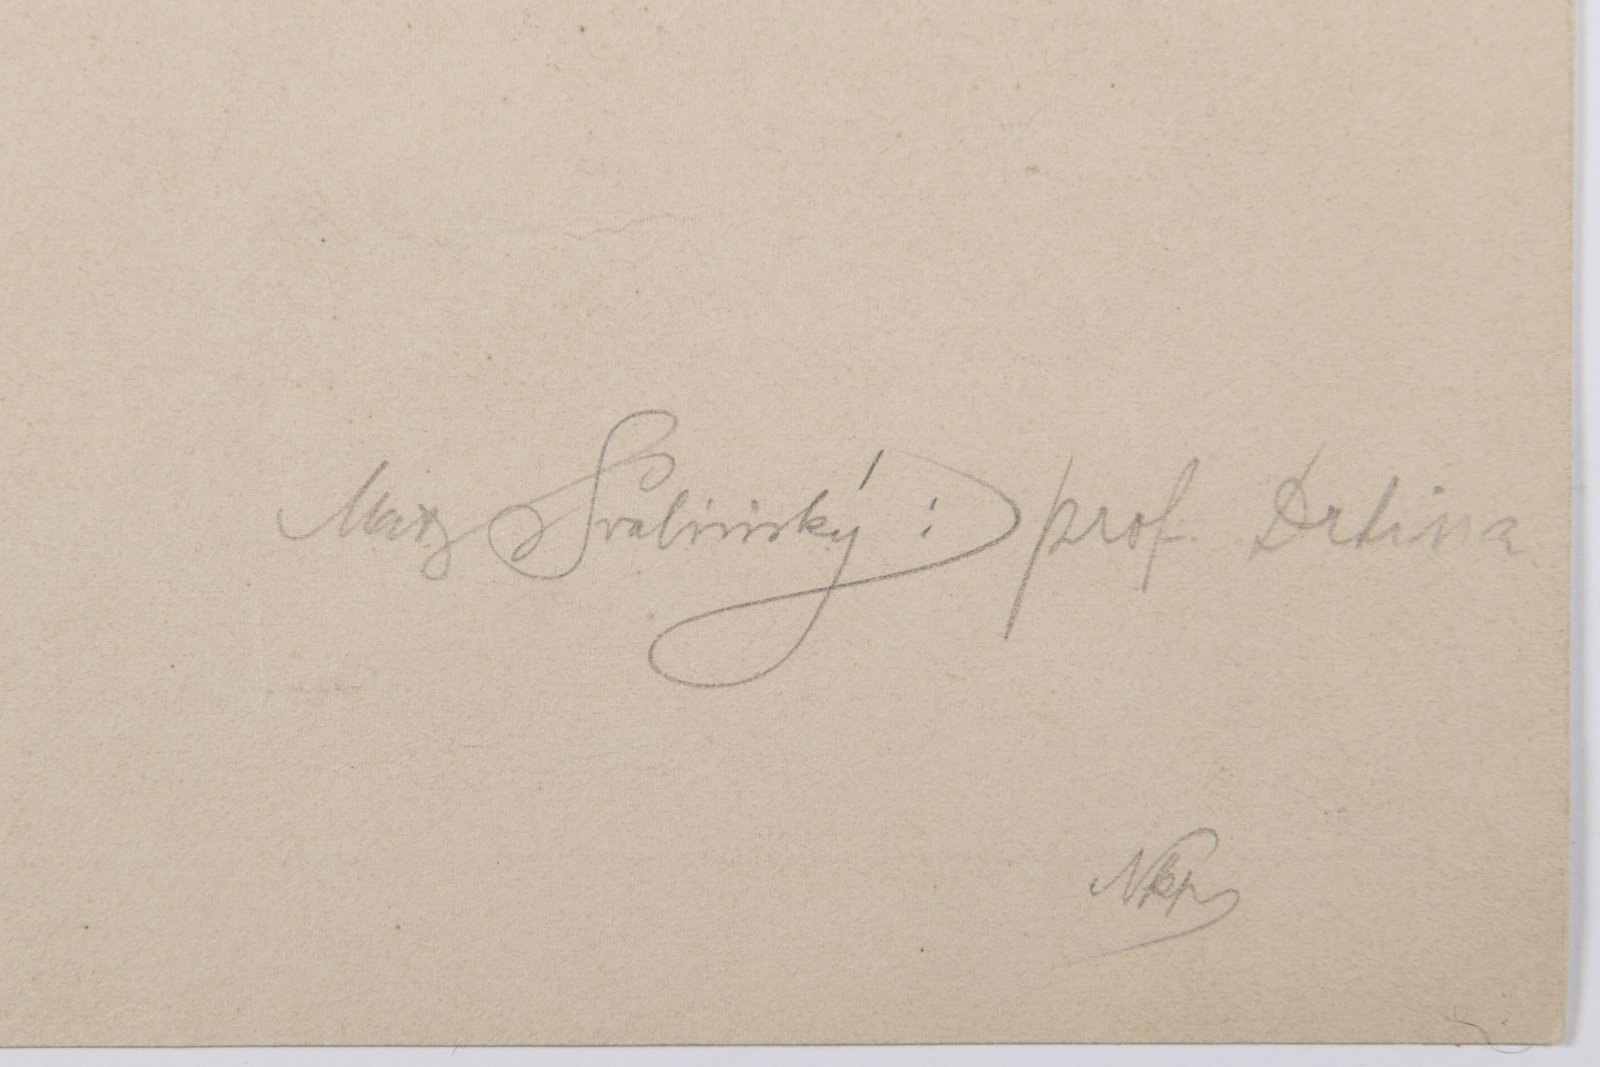 Max Švabinský : prof. Drtina